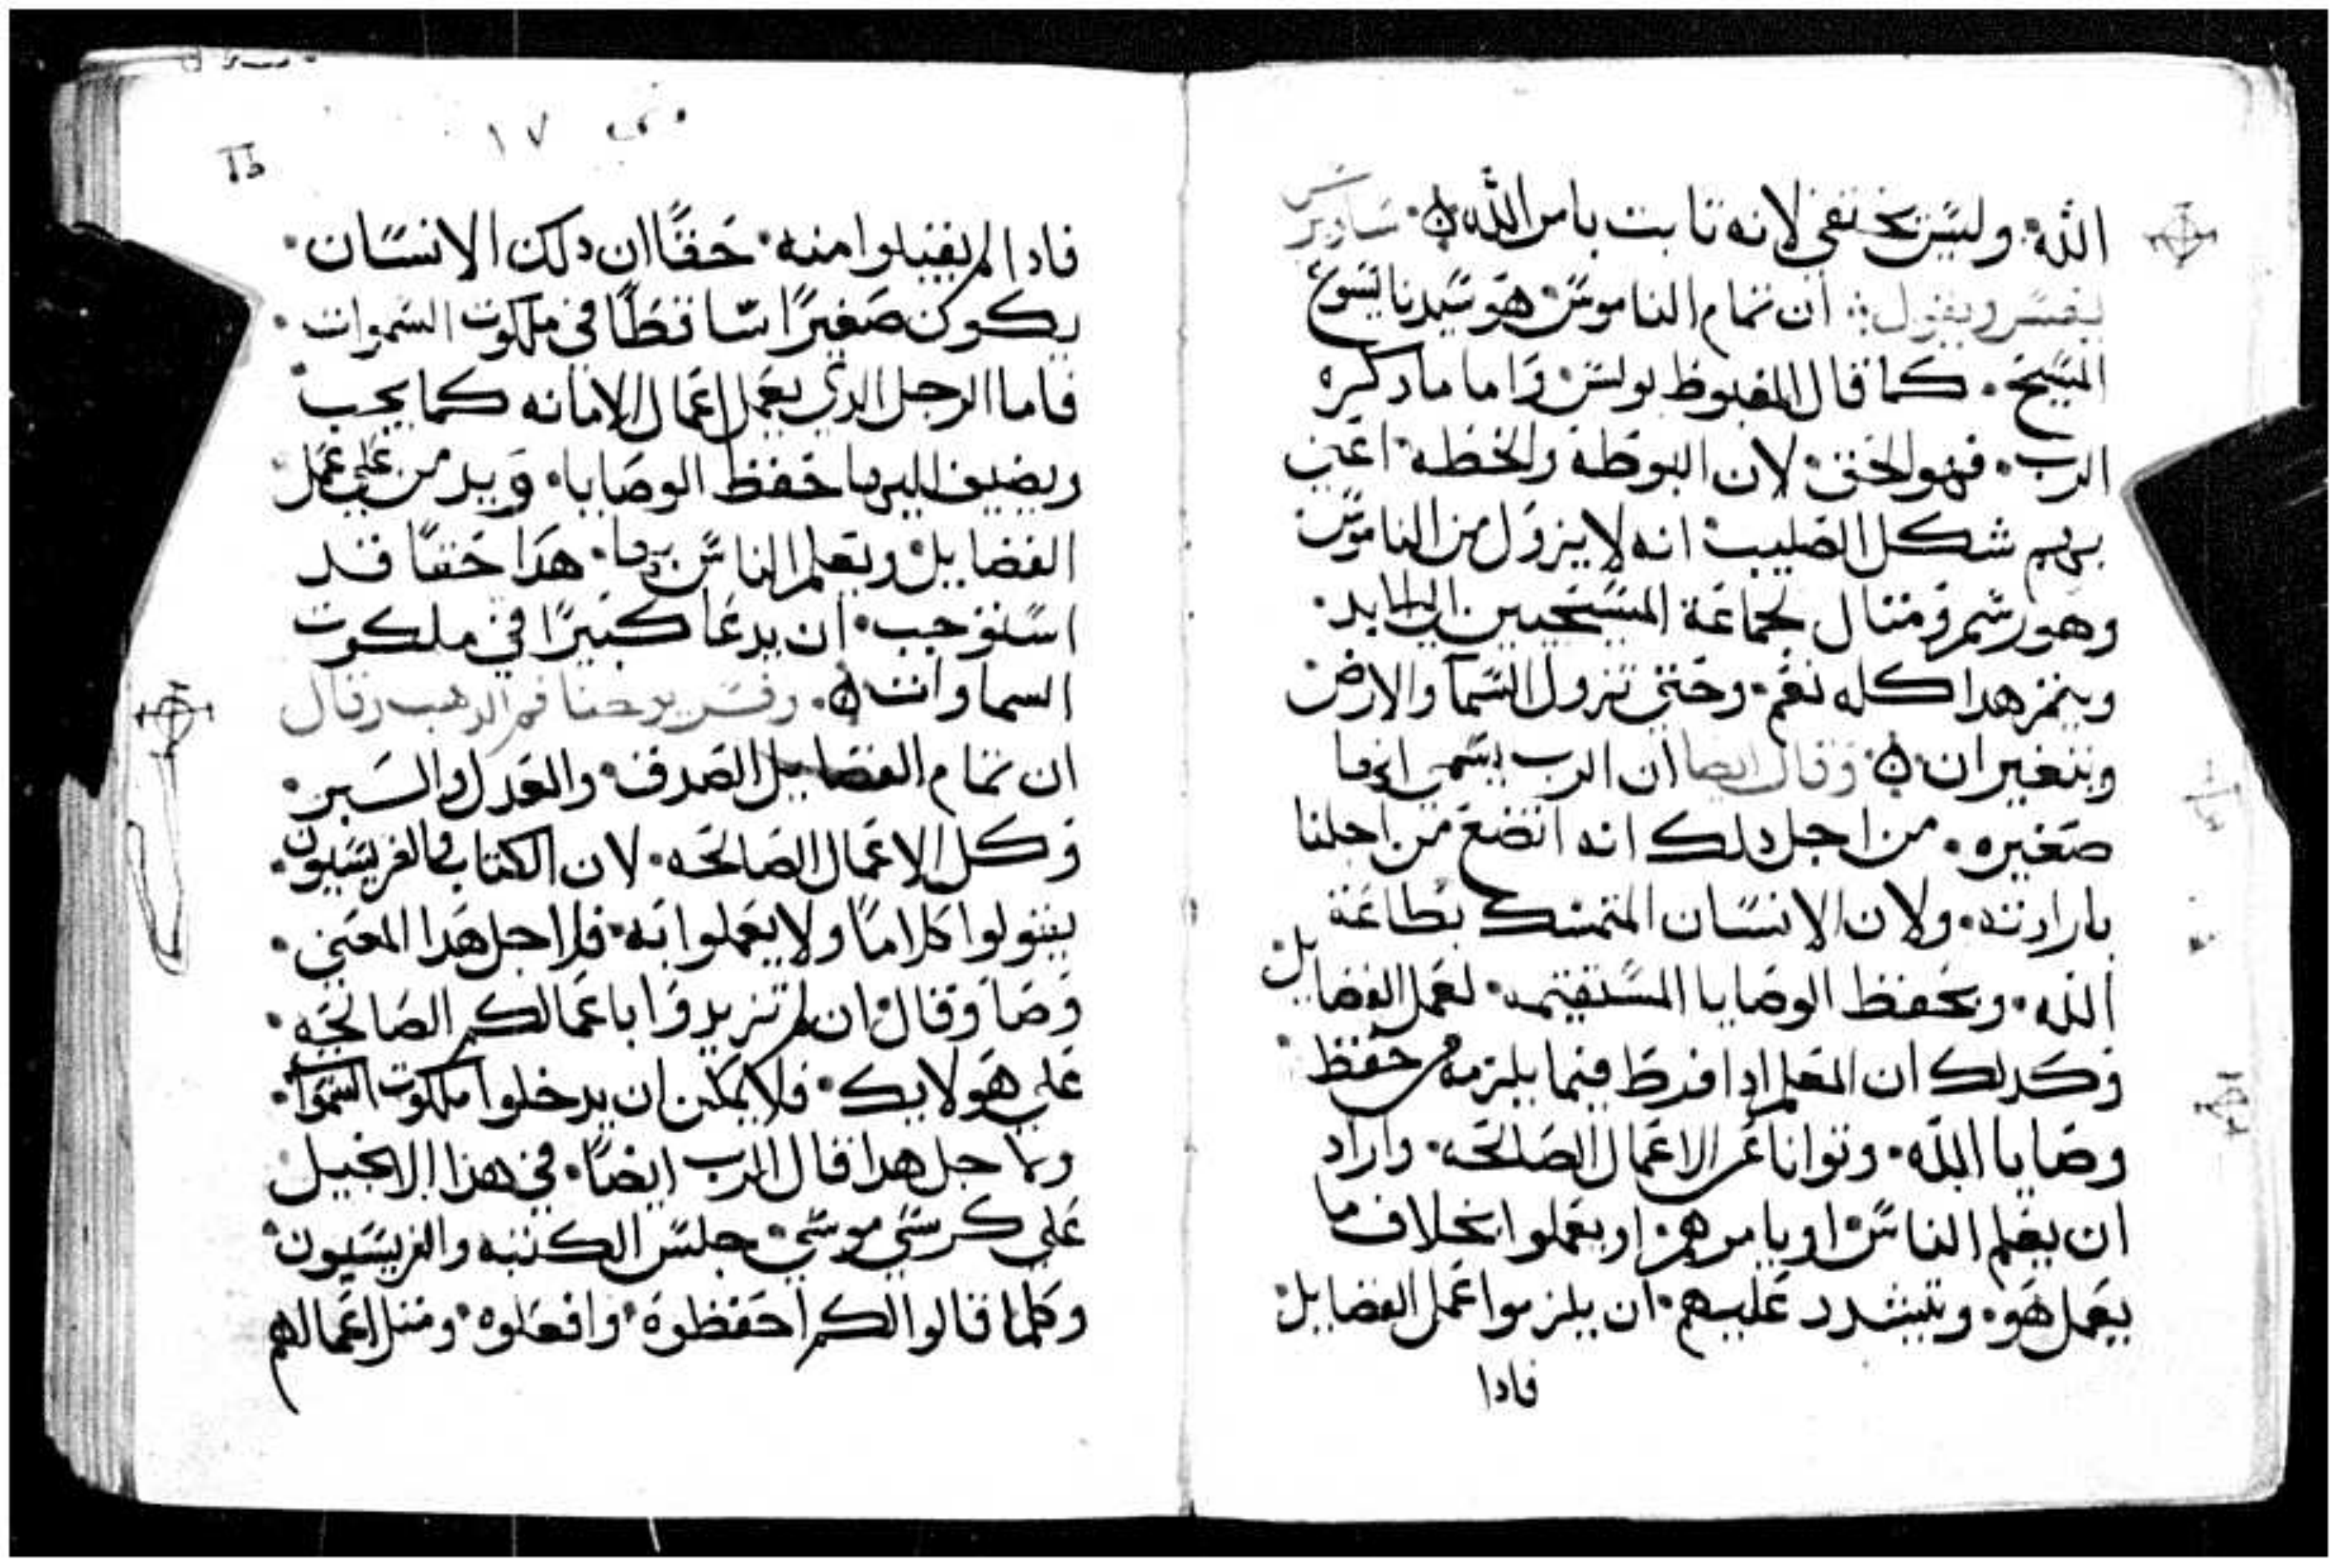 الله. وليس تختفي لانه تابت بامر الله. ساويرس
يفسر ويقول: ان تمام الناموس هو سيدنا يسوع
المسيح. كما قال المغبوط بولس واما ما دكره
الرب. فهو الحق. لان اليوطه والخطه. اعني
بهم شكل الصليب انه لا يزول من الناموس
وهو رشم ومتال لجماعة المسيحيين الي الابد.
ويتم هدا كله نعم. وحتي تزول السما والارض
ويتغيران. وقال ايضا ان الرب يسمي انها
صغيره. من اجل دلك انه اتضع من اجلنا
بارادته. ولان الانسان المتمسك بطاعة
الله. وبحفظ الوصايا المستقيمه. لعمل الفضايل
وكدلك ان المعلم ادا فرط فيما يلزمه من حفظ
وصايا الله. وتوانا عن الاعمال الصالحه. واراد
ان يعلم الناس او يامرهم او يعملوا بخلاف ما
يعمل هو. ويتشدد عليهم. ان يلزموا عمل الفضايل
فادا
متي ١٧
فادا لم يقبلوا منه. حقا ان دلك الانسان.
يكون صغيرا ساقطا في ملكوت السموات.
فاما الرجل الدي يعمل اعمال الامانه كما يجب
ويضيف اليها حفظ الوصايا. ويدمن علي عمل
الفضايل ويعلم الناس بها. هدا حقا قد
استوجب. ان يدعا كبيرا في ملكوت
السماوات. وفسر يوحنا فم الدهب وقال
ان تمام الفضايل الصدق والعدل والسبر.
وكل الاعمال الصالحه. لان الكتاب والفريسيون.
يقولوا كلاما ولا يعملوا به. فلاجل هدا المعني.
وصا وقال ان لم تزيدوا باعمالكم الصالحه.
علي هولايك. فلا يمكن ان يدخلوا ملكوت السموات.
ولاجل هدا قال الرب ايضا. في هدا الانجيل
علي كرسي موسي. جلس الكتبه والفريسيون
وكلما قالوا لكم احفظوه. وافعلوه. ومتل اعمالهم